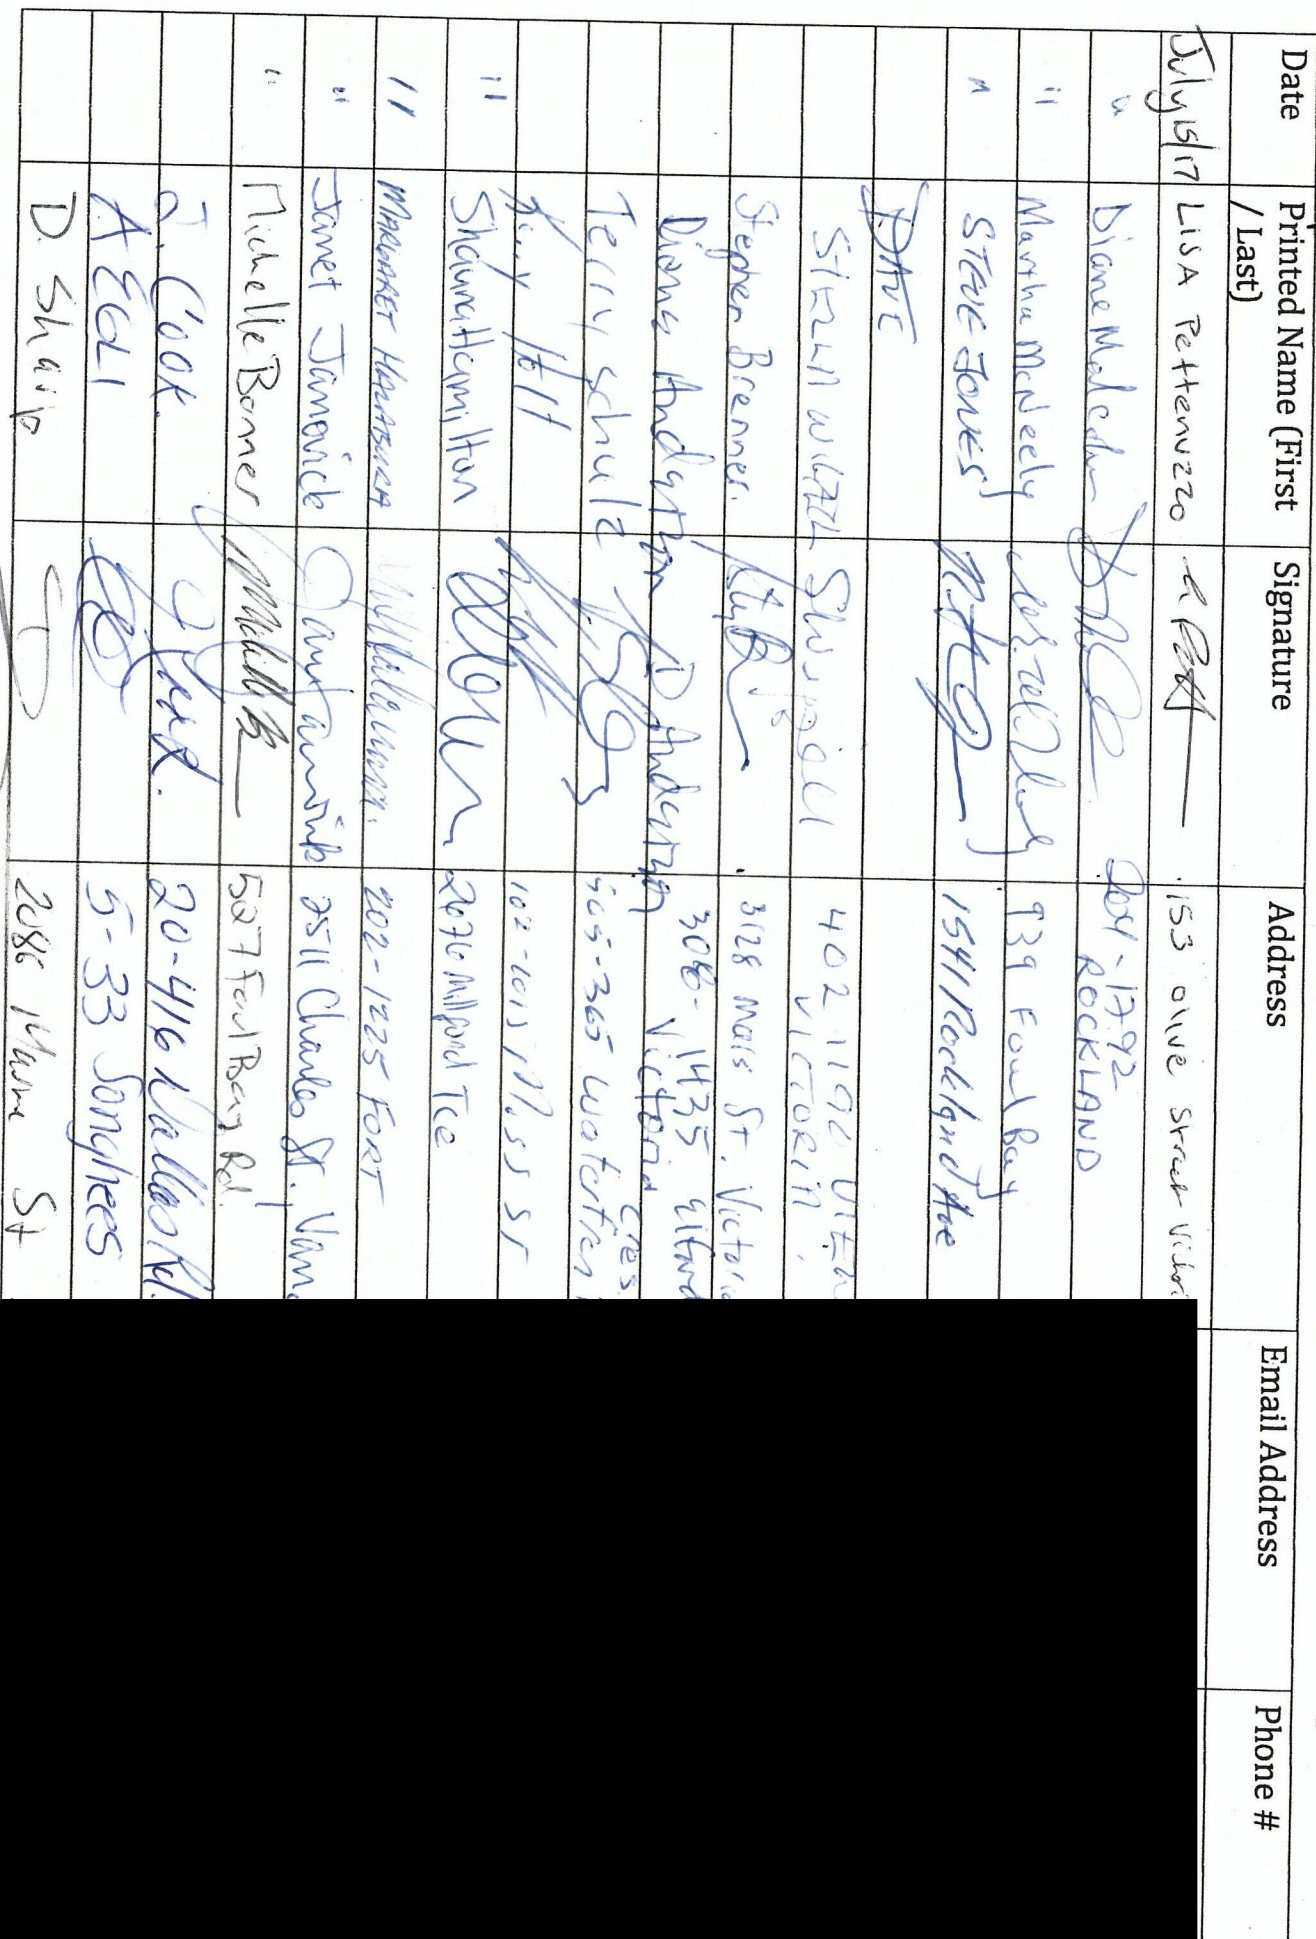 Date Printed Name (First / Last) Signature Address Email Address Phone #
July 15/17 LISA Pettenuzzo 153 olive street
" Diane Malcolm 204-1792 ROCKLAND
" Martha McNeely 939 Foul Bay
" STEVE JONES 1541 Rockland Ave
DAVE
402 1190 VICTORIA
Stephen Brenner. 3128 Mars St. Victoria
Diana Andyrzon D Andyrzon 306- 1435 Victoria
Terry Schulz 505-365 Waterfront Cres.
Holt
" Shawna Hamilton 2676 Millgrove Tce
" MARGARET 202-1225 FORT
" Janet Janowick 2511 Charles St. Van.
" Michelle Bonner 527 Foul Bay Rd.
J. Cook. 20-416 Dallas Rd.
A EDLI 5-33 Songhees
D. Sharp 2086 St